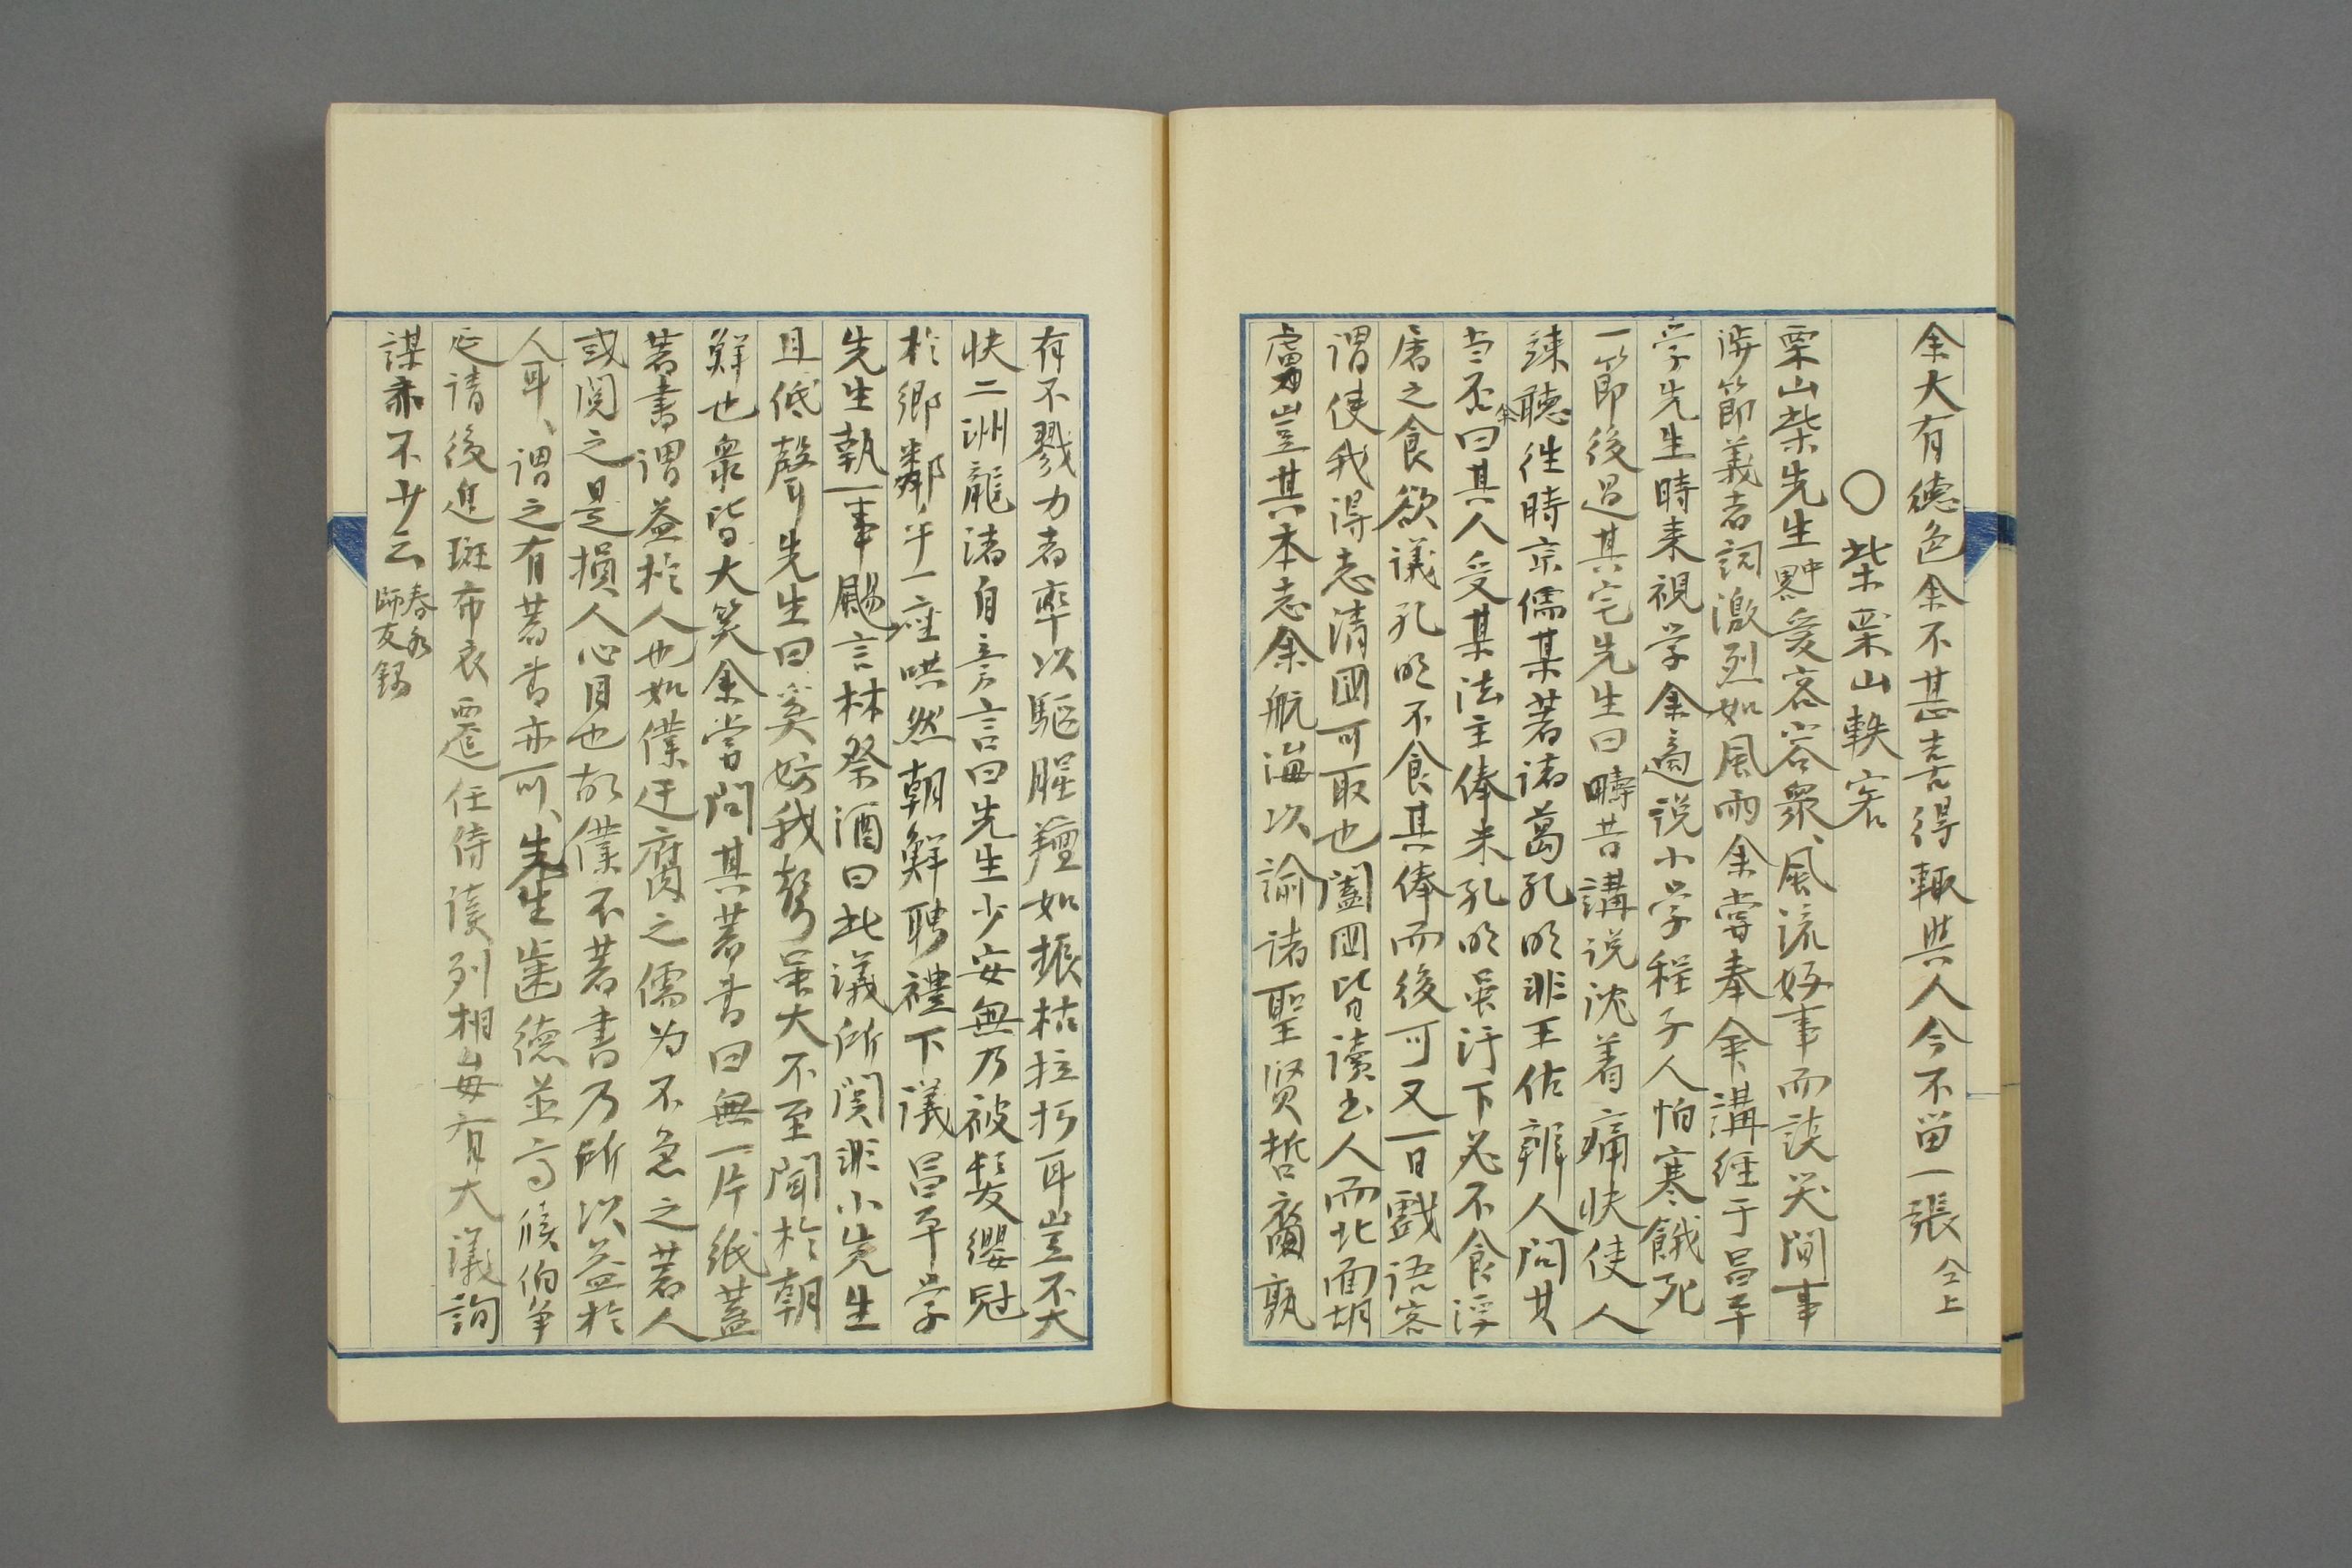 余大有德色余不甚喜得輙与人今不留一張 仝上
○柴栗山軼客
栗山柴先生愛客容衆、風流好事而談笑間事
涉節義者詞激烈如風雨余嘗奉命講経于昌平
学先生時来視学余適说小学程子人怕寒餓死
一節後過其宅先生曰疇昔講说沈着痛快使人
竦聴徃時京儒某著諸葛孔明非王佐辨人問其
当否余曰其人受某法主俸米孔明虽汙下必不食浮
屠之食欲議孔明不食其俸而後可又一日戲语客
谓使我得志清國可取也闔國皆读书人而北面胡
虜豈其本志余航海以諭诸聖贤哲裔孰
有不戮力者率以駆腥羶如振枯拉朽耳豈不大
快二洲龍渚自旁言曰先生少安無乃被髮纓冠
於鄉鄰乎一座哄然朝鮮聘禮下議昌平学
先生執一事颺言林祭酒曰此議所関非小先生
且低聲先生曰奚妨我聲虽大不至聞於朝
鮮也衆皆大笑余嘗問其著书曰無一片紙蓋
著書谓益於人也如僕迂腐之儒为不急之著人
或閲之是损人心目也故僕不著書乃所以益於
人耳、谓之有著书亦可、先生歯德並高候伯争
延请後進斑布衣遷任侍读列相毎有大議詢
謀亦不少云 春水師友録